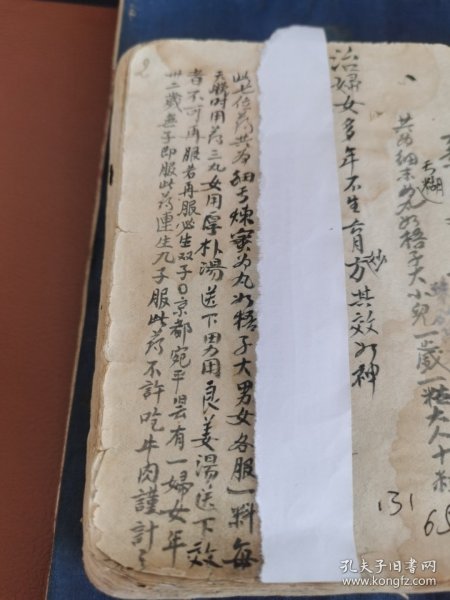 共為細末 為丸如梧子大小兒一歲一粒大人十粒
糊
131
65
治婦女多年不生育方 其效如神
妙
此七位药共为細末煉蜜为丸如梧子大男女各服一料每
天服时用药三丸女用厚朴湯送下男用良姜湯送下效
者不可再服若再服必生双子曰京都宛平县有一婦女年
卅二歲無子即服此药連生九子服此药不許吃牛肉謹計之
2
孔夫子旧书网
www.kongfz.com